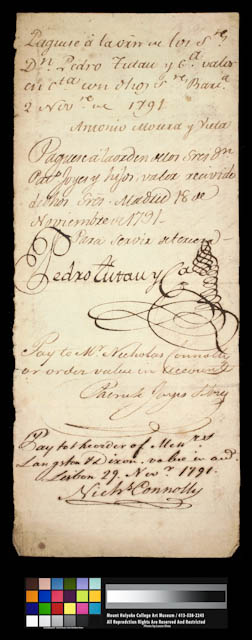 Paguese à la orn de los Sres
Dn Pedro Tutau y Ca valor
en cta con dhos Sres Bara
2 Novre de 1791
Antonio Moura y
Paguese à la orden de los Sres Dn
Pato Joyes y hijos, valor recivido
de dhos Sres Madrid 18 de
Noviembre de 1791-
Para servir de tercera-
Pedro Tutau y Ca
Pay to Mr Nicholas Connolly
or order value in account
Joyes
Pay to the order of Messrs
Langston & Dixon, value in acct.
Lisbon 29, Novr 1791.
Nichs Connolly
Mount Holyoke College Art Museum / 413-538-2245
All Reproduction Rights Are Reserved And Restricted